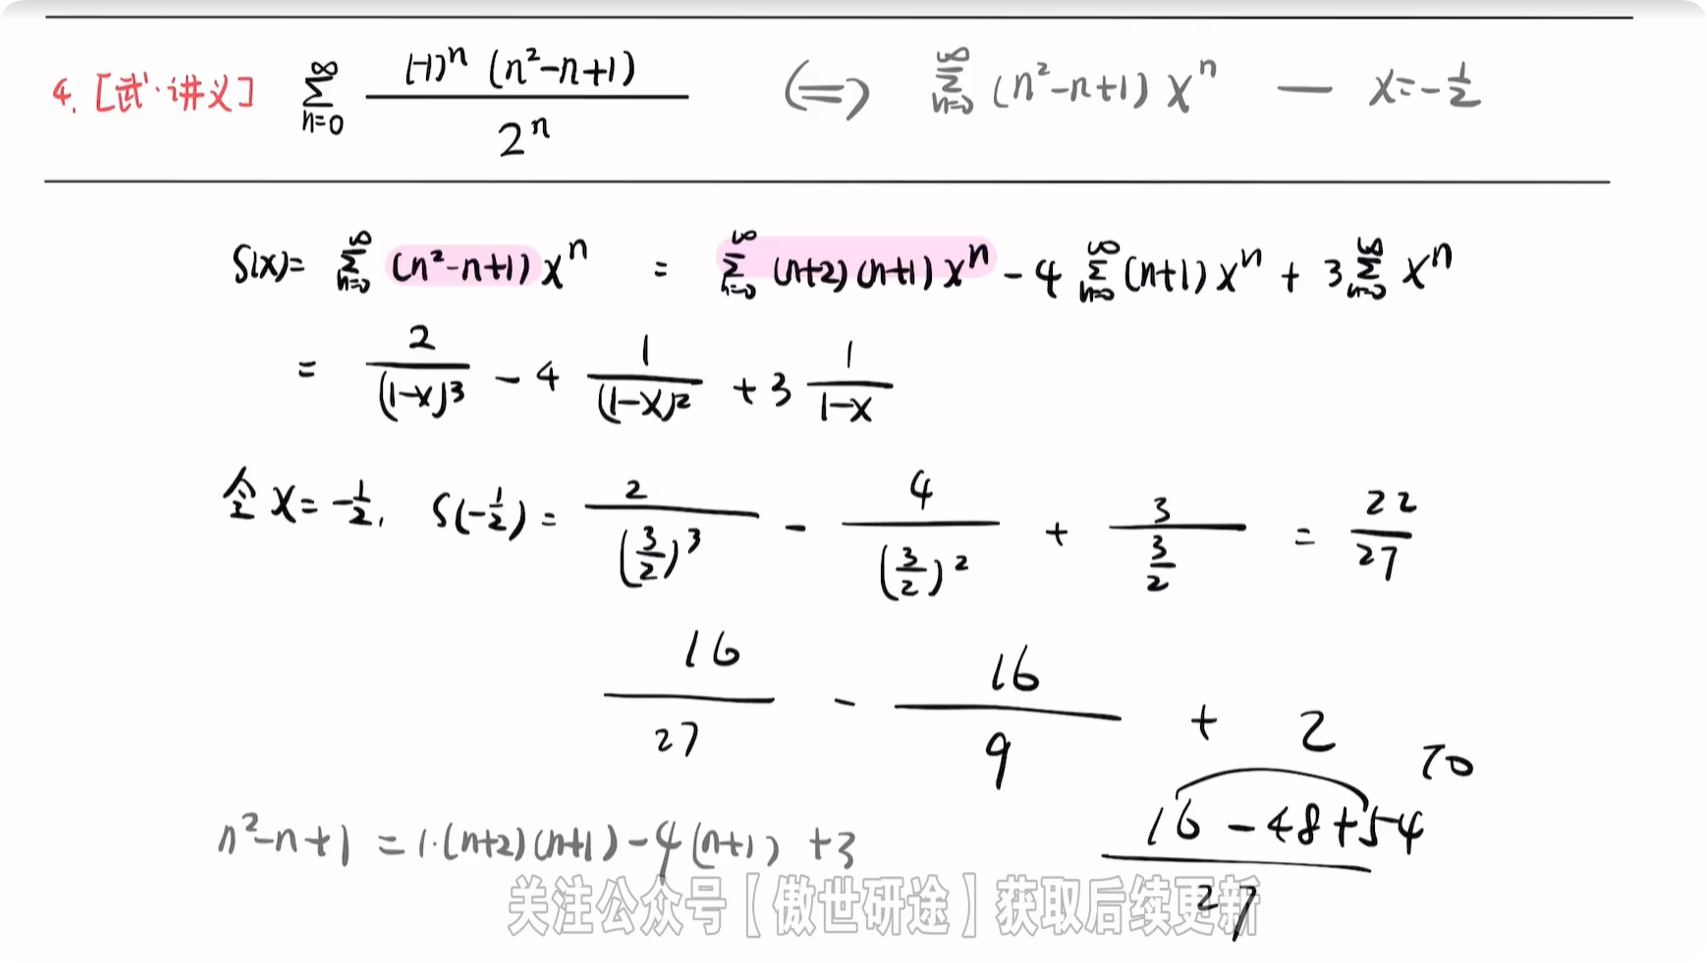 4. [武·讲义] ∑_{n=0}^{∞} (-1)^n (n²-n+1) / 2^n (⇔) ∑_{n=0}^{∞} (n²-n+1) x^n — x=-1/2
S(x)= ∑_{n=0}^{∞} (n²-n+1) x^n = ∑_{n=0}^{∞} (n+2)(n+1) x^n - 4 ∑_{n=0}^{∞} (n+1) x^n + 3 ∑_{n=0}^{∞} x^n
= 2/(1-x)³ - 4 1/(1-x)² + 3 1/(1-x)
令 x=-1/2, S(-1/2) = 2/(3/2)³ - 4/(3/2)² + 3/(3/2) = 22/27
16/27 - 16/9 + 2
70
(16-48+54)/27
n²-n+1 = 1·(n+2)(n+1)-4(n+1)+3
关注公众号【傲世研途】获取后续更新